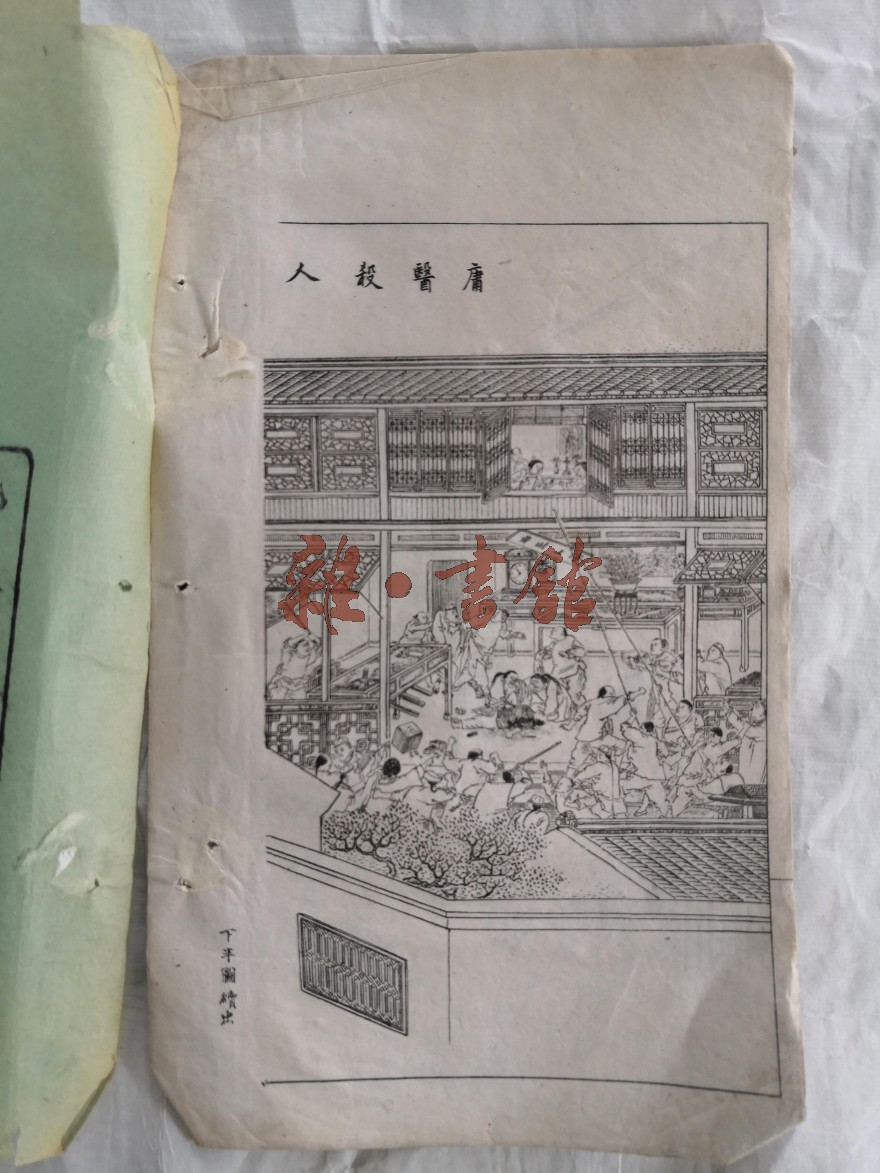 庸醫殺人
雜·書舘
下半圖續出